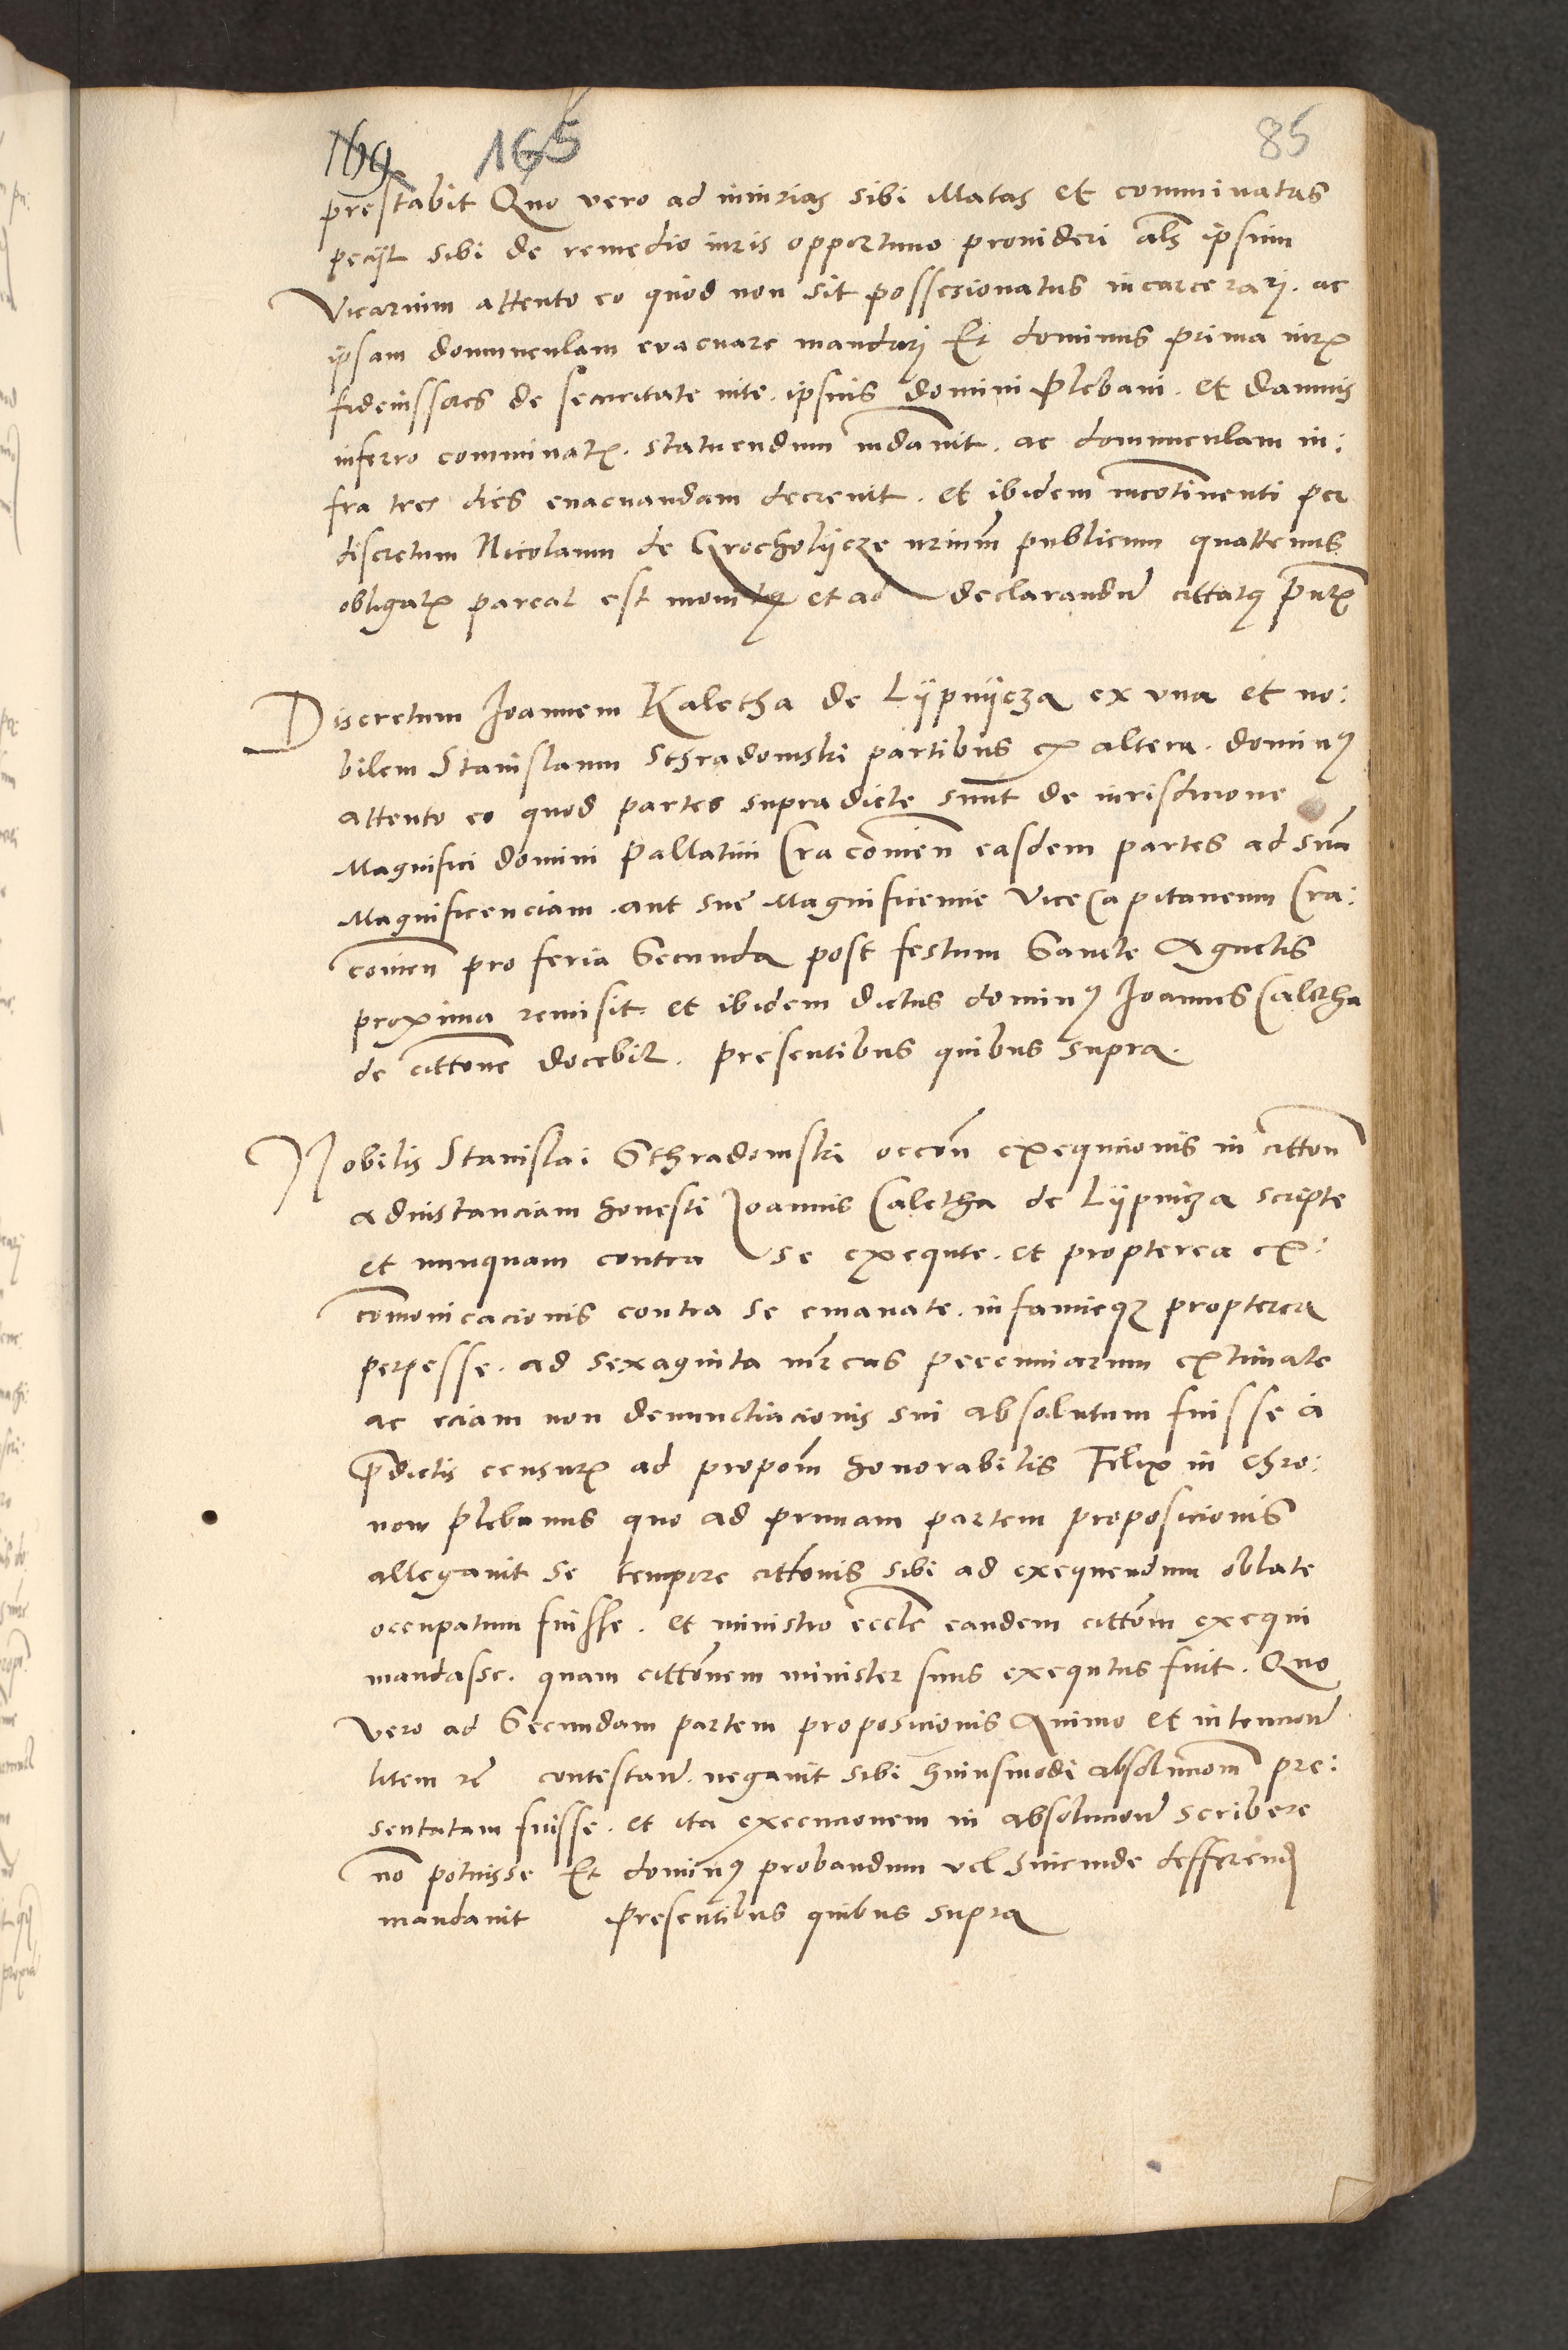 169 165 85
prestabit Quo vero ad iniurias sibi illatas et comminatas
peciit sibi de remedio iuris opportuno provideri als ipsum
Vicarium attento eo quod non sit possesionatus incarcerari. ac
ipsam domunculam evacuare mandari Et dominus prima iurx
fideiussores de securitate vite. ipsius domini Plebani. et damnis
inferro comminatx. statuendum mdavit. ac domunculam in:
fra tres dies evacuandam decrevit. et ibidem incotinenti per
discretum Nicolaum de Grocholijcze nrium publicum quattenus
obligatx pareat est monitus et ad declarandu cittatus pntx
Discretum Joannem Kaletha de Lijpnijcza ex una et no:
bilem Stanislaum Sthradomski partibus ex altera. dominus
attento eo quod partes supradicte sunt de iurisdicione
Magnifici domini Pallatini Cracovien easdem partes ad sua
Magnificenciam. aut sue Magnificencie ViceCapitaneum Cra:
covien pro feria Secunda post festum Sancte Agnetis
proxima remisit. et ibidem dictus dominus Joannes Caletha
de cittone docebit. Presentibus quibus supra.
Nobilis Stanislai Sthradomski occon exequcionis in citton
ad instanciam honesti Joannis Caletha de Lijpnicza scripte
et nunquam contra se exequte. et propterea ex:
comonicacionis contra se emanate. infamieqz propterea
perpesse. ad sexaginta mrcas pecuniarum extimate
ac eciam non denunctiacionis sui absolutum fuisse a
pdictis censurx ad propom honorabilis Felix in Chro:
now Plebanus quo ad primam partem proposicionis
allegavit se tempore cittonis sibi ad exequendum oblate
occupatum fuisse. et ministro eccle eandem cittom exequi
mandasse. quam cittonem minister suus exequtus fuit. Quo
vero ad Secundam partem proposicionis Animo et intencione
litem re contestan. negavit sibi huiusmodi absolucom pre:
sentatam fuisse. et ita execucionem in absolucione scribere
no potuisse Et dominus probandum vel iurande defferend
mandavit Presentibus quibus supra